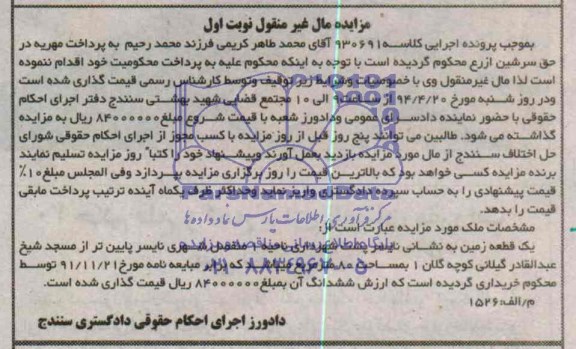 مزایده مال غیر منقول نوبت اول
بموجب پرونده اجرایی کلاسه ۹۳۰۶۹۱ آقای محمد طاهر کریمی فرزند محمد رحیم به پرداخت مهریه در
حق سرشین ازرع محکوم گردیده است با توجه به اینکه محکوم علیه به پرداخت محکومیت خود اقدام ننموده
است لذا مال غیرمنقول وی با خصوصیات وشرایط زیر توقیف وتوسط کارشناس رسمی قیمت گذاری شده است
ودر روز شنبه مورخ ۹۴/۴/۲۰ از ساعت ۹ الی ۱۰ مجتمع قضایی شهید بهشتی سنندج دفتر اجرای احکام
حقوقی با حضور نماینده دادسرای عمومی ودادورز شعبه با قیمت شروع مبلغ ۸۴۰۰۰۰۰۰ ریال به مزایده
گذاشته می شود. طالبین می توانند پنج روز قبل از روز مزایده با کسب مجوز از اجرای احکام حقوقی شورای
حل اختلاف سنندج از مال مورد مزایده بازدید بعمل آورند وپیشنهاد خود را کتبا" روز مزایده تسلیم نمایند
برنده مزایده کسی خواهد بود که بالاترین قیمت را روز برگزاری مزایده بپردازد وفی المجلس مبلغ ۱۰٪
قیمت پیشنهادی را به حساب سپرده دادگستری واریز نماید وحداکثر ظرف یکماه آینده ترتیب پرداخت مابقی
قیمت را بدهد.
مشخصات ملک مورد مزایده عبارت است از:
یک قطعه زمین به نشانی نایسر شهرداری ناحیه منفصل شهری نایسر پایین تر از مسجد شیخ
عبدالقادر گیلانی کوچه گلان ۱ بمساحت ۸۰ متر مربع برابر مبایعه نامه مورخ ۹۱/۱۱/۲۱ توسط
محکوم خریداری گردیده است که ارزش ششدانگ آن بمبلغ ۸۴۰۰۰۰۰۰ ریال قیمت گذاری شده است.
م/الف: ۱۵۲۶
دادورز اجرای احکام حقوقی دادگستری سنندج
ParsNamadData
مرکز فرآوری اطلاعات پارس نماد داده ها
۰۲۱-۸۸۳۴۹۶۷۰-۵